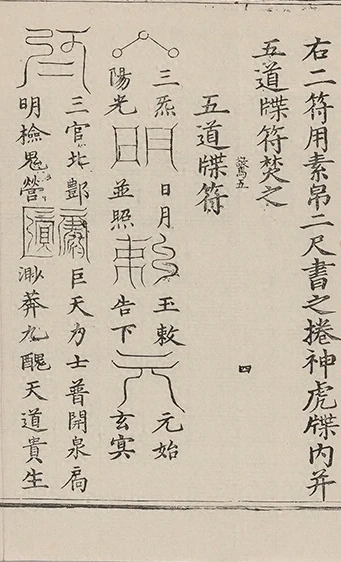 右二符用素帛二尺書之捲神虎牒内并
五道牒符焚之
五
四
五道牒符
三炁 日月 玉敕 元始
陽光 並照 告下 玄冥
三官北酆 巨天力士普開泉扃
明檢鬼營 渺莽九醜天道貴生